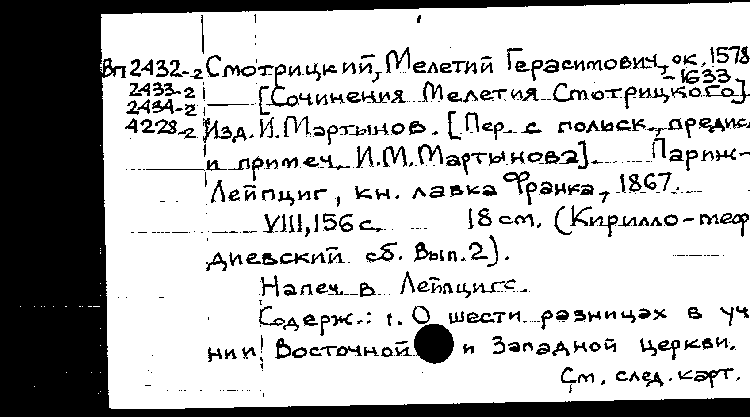 Вп 2432-2 Смотрицкий, Мелетий Герасимович, ок. 1578
2433-2 -1633.
2434-2 [Сочинения Мелетия Смотрицкого].
4228-2 Изд. И. Мартынов. [Пер. с польск., предисл
и примеч. И.М. Мартынова]. Париж-
Лейпциг, кн. лавка Франка, 1867.
VIII, 156 с. 18 см. (Кирилло-меф
диевский сб. Вып. 2).
Напеч. в Лейпциге.
Содерж.: 1. О шести разницах в уч
нии Восточной и Западной церкви.
См. след. карт.